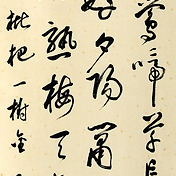 鶯啼草長
好夕陽
熟梅天
枇杷一樹金